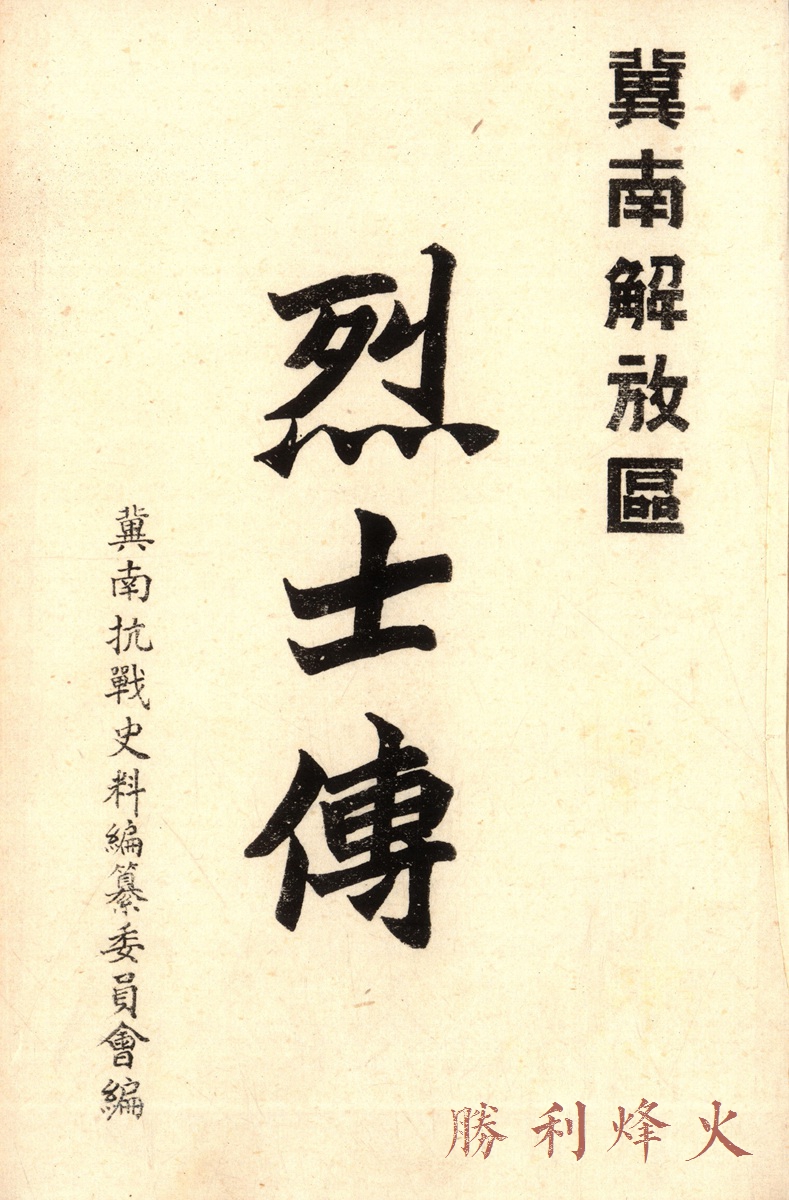 冀南解放區
烈士傳
冀南抗戰史料編纂委員會編
勝利烽火